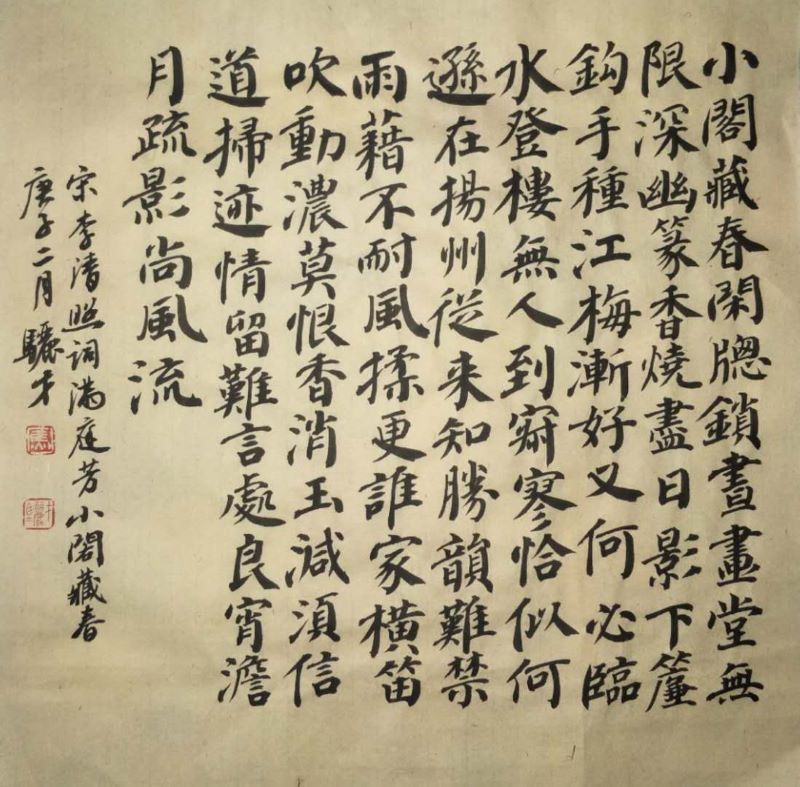 小閣藏春閑牕鎖晝畫堂無
限深幽篆香燒盡日影下簾
鈎手種江梅漸好又何必臨
水登樓無人到寂寥恰似何
遜在揚州從来知勝韻難禁
雨藉不耐風揉更誰家橫笛
吹動濃莫恨香消玉減須信
道掃迹情留難言處良宵澹
月疏影尚風流
宋李清照詞滿庭芳小閣藏春
庚子二月驪才